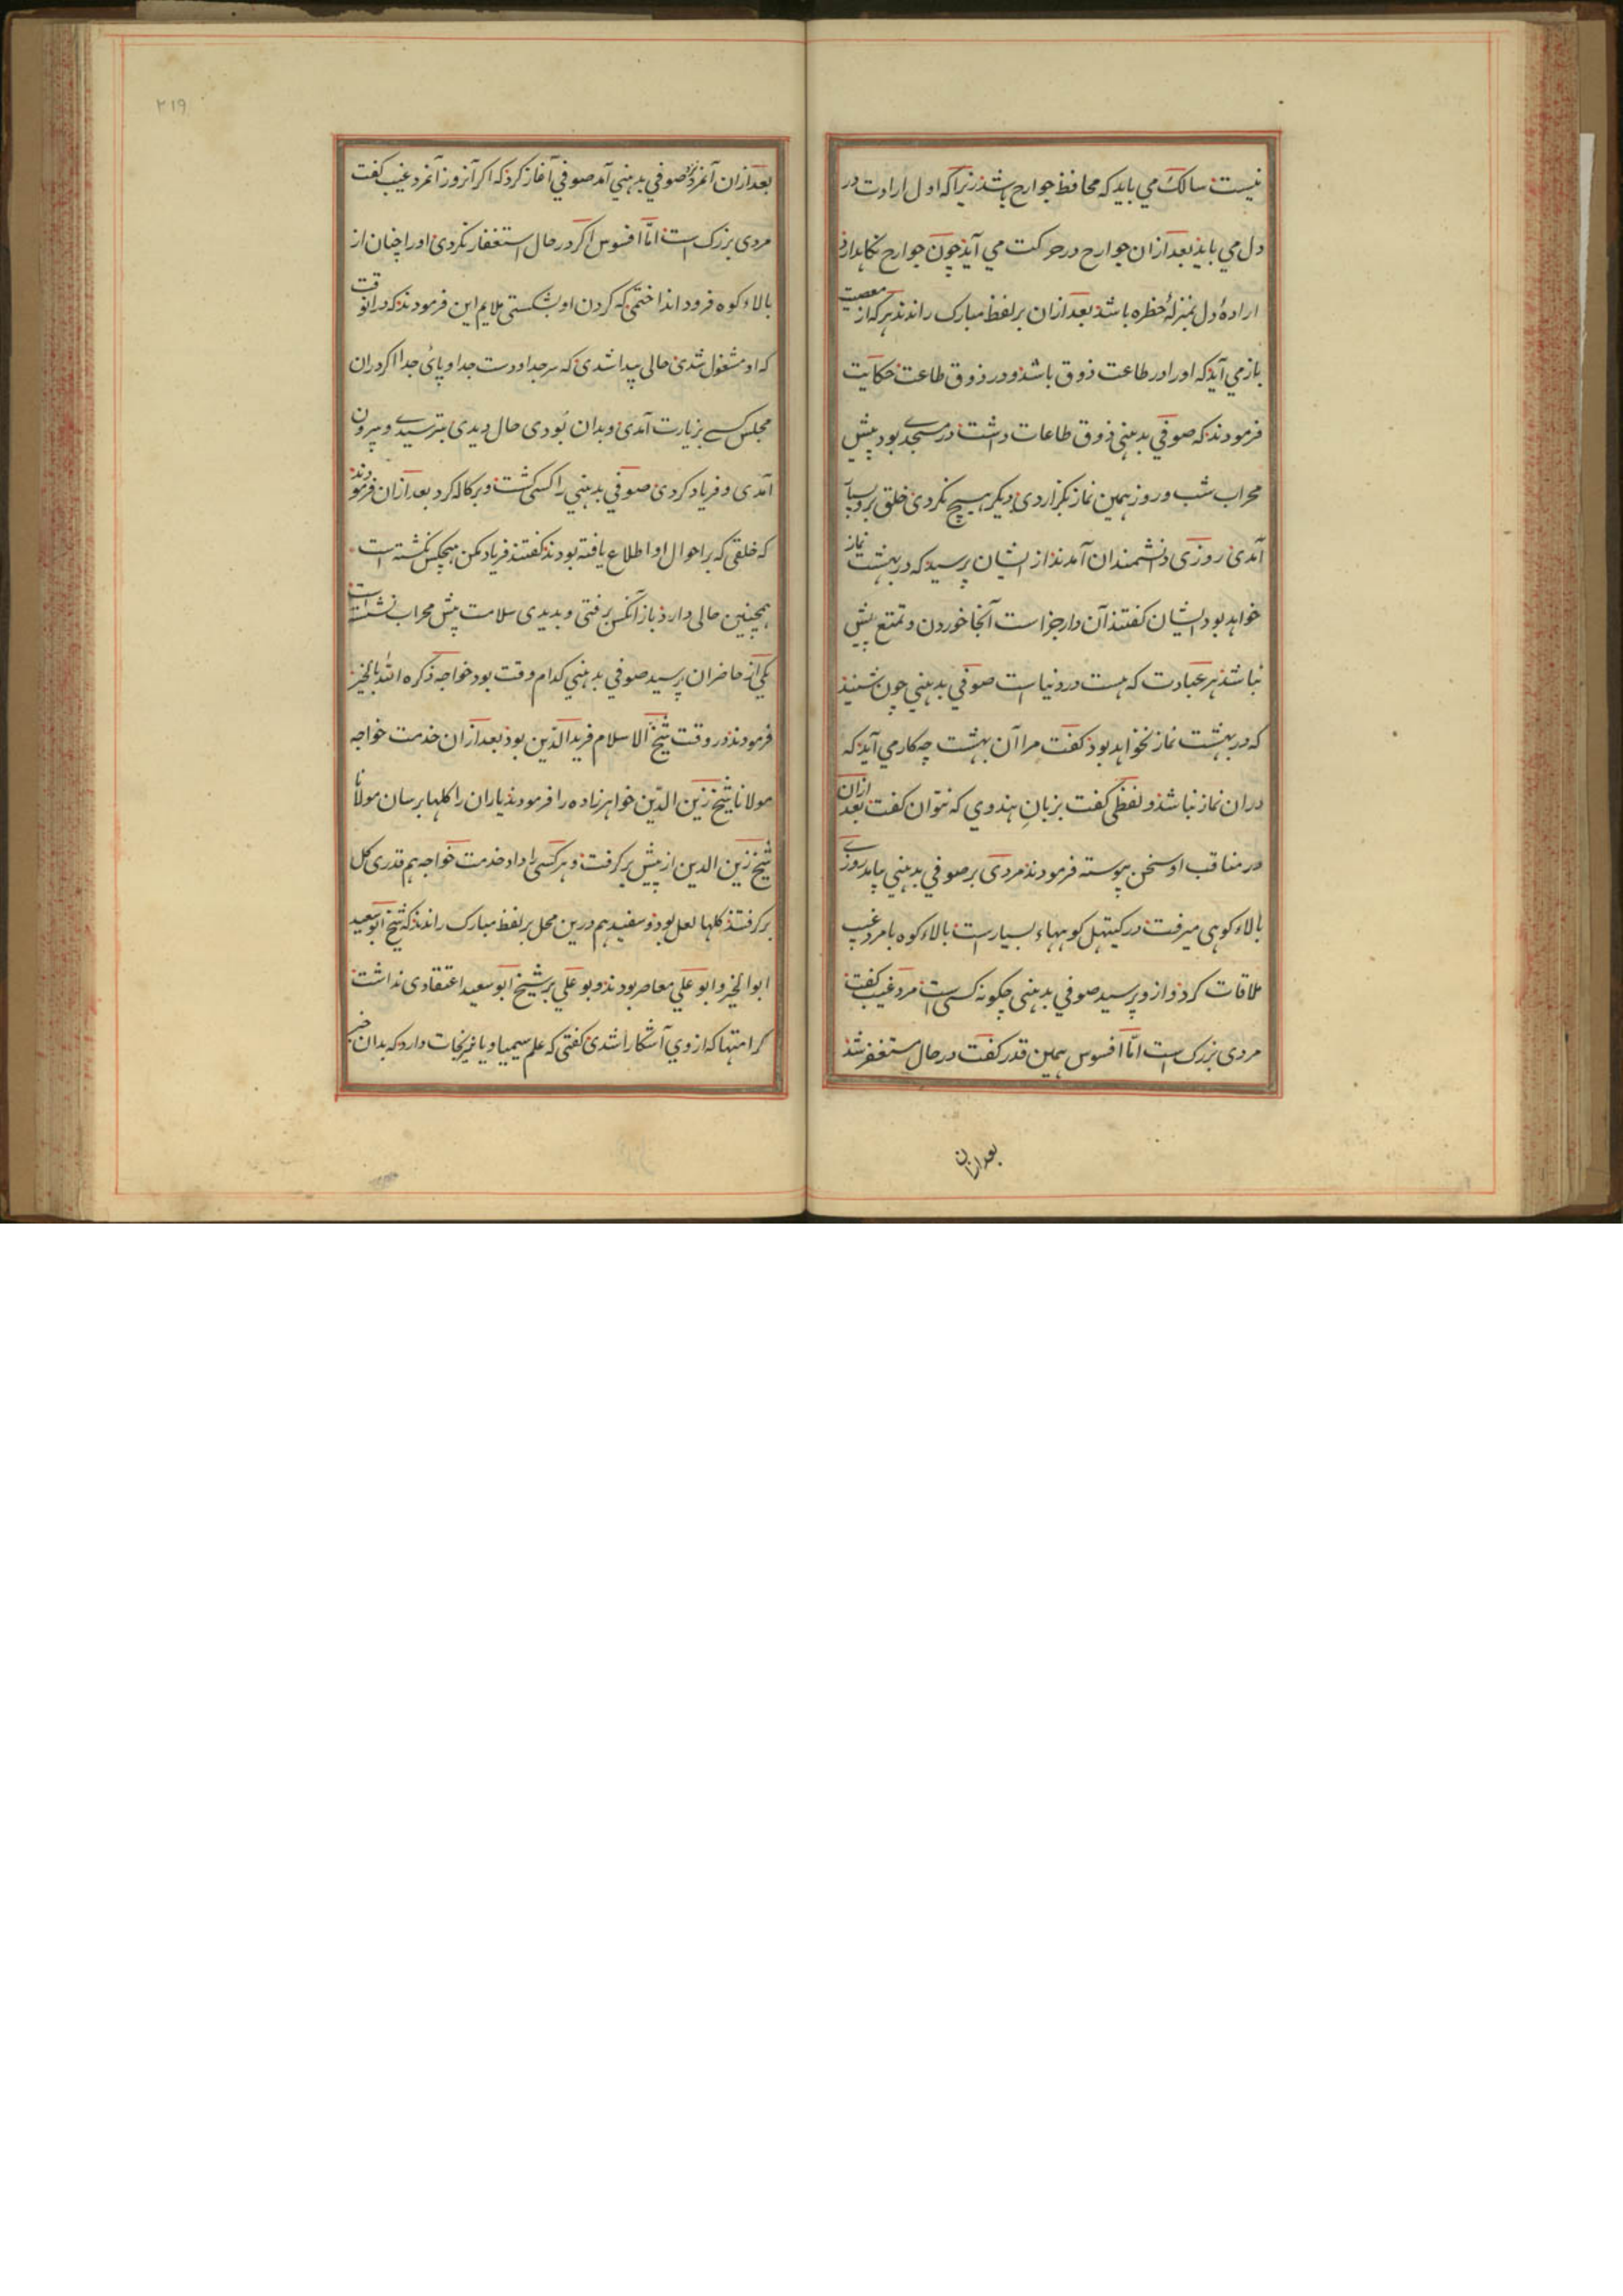 نیست سالک می باید که محافظ جوارح باشد زیرا که اول ارادت در
دل می باید بعد ازان جوارح در حرکت می آید چون جوارح نگاهدارد
ارادهٔ دل بمنزلهٔ خطره باشد بعد ازان بر لفظ مبارک راندند هر که از معصیت
باز می آید که او را در طاعت ذوق باشد و در ذوق طاعت حکایت
فرمودند که صوفی بدهنی ذوق طاعات داشت در مسجدے بود پیش
محراب شب و روز همین نماز بگزاردی دیگر هیچ نکردی خلق برو بسیار
آمدی روزی دانشمندان آمدند از ایشان پرسید که در بهشت نماز
خواهد بود ایشان گفتند آن دار جزاست آنجا خوردن و تمتع بیش
نباشد هر عبادت که هست در دنیا است صوفی بدهنی چون شنید
که در بهشت نماز نخواهد بود گفت مرا آن بهشت چکار می آید که
دران نماز نباشد و لفظی گفت بزبانِ هندوی که نتوان گفت بعد ازان
در مناقب او سخن پیوسته فرمودند مردی بر صوفی بدهنی بیامد روزے
بالاء کوهی میرفت در کیتهل کوهها بسیار است بالاء کوه با مرد غیب
ملاقات کرد و ازو پرسید صوفی بدهنی چگونه کسی است مرد غیب گفت
مردی بزرگ است امّا افسوس همین قدر گفت در حال مستغفر شد
بعد ازان
۲۱۹
بعد ازان آنمرد بر صوفی بدهنی آمد صوفی آغاز کرد که اگر آنروز آنمرد غیب گفت
مردی بزرگ است امّا افسوس اگر در حال استغفار نکردی او را چنان از
بالاء کوه فرود انداختمی که گردن او بشکستی ملایم این فرمودند که درانوقت
که او مشغول شدی حالی پیدا شدی که سر جدا و دست جدا و پای جدا اگر دران
مجلس کسے بزیارت آمدی و بدان بودی حال دیدی بترسیدے و بیرون
آمدی و فریاد کردی صوفی بدهنی را کسی کشت و پرکاله کرد بعد ازان فرمودند
که خلقی که بر احوال او اطلاع یافته بودند گفتند فریاد مکن هیچکس نکشته است
همچنین حالی دارد باز آنکس برفتی و بدیدی سلامت پیش محراب نشسته است
یکی از حاضران پرسید صوفی بدهنی کدام وقت بود خواجه ذکره الله بالخیر
فرمودند در وقت شیخ الاسلام فرید الدّین بود بعد ازان خدمت خواجه
مولانا شیخ زین الدّین خواهرزاده را فرمودند یاران را گلها برسان مولانا
شیخ زین الدین از پیش برگرفت و هر کسی را داد خدمت خواجه هم قدری گل
برگرفتند گلها لعل بود و سفید هم درین محل بر لفظ مبارک راندند که شیخ ابو سعید
ابو الخیر و ابو علی معاصر بودند و بو علی بر شیخ ابو سعید اعتقادی نداشت
کرامتها که از وی آشکارا شدی گفتی که علم سیمیا و یا نیرنجات دارد که بدان